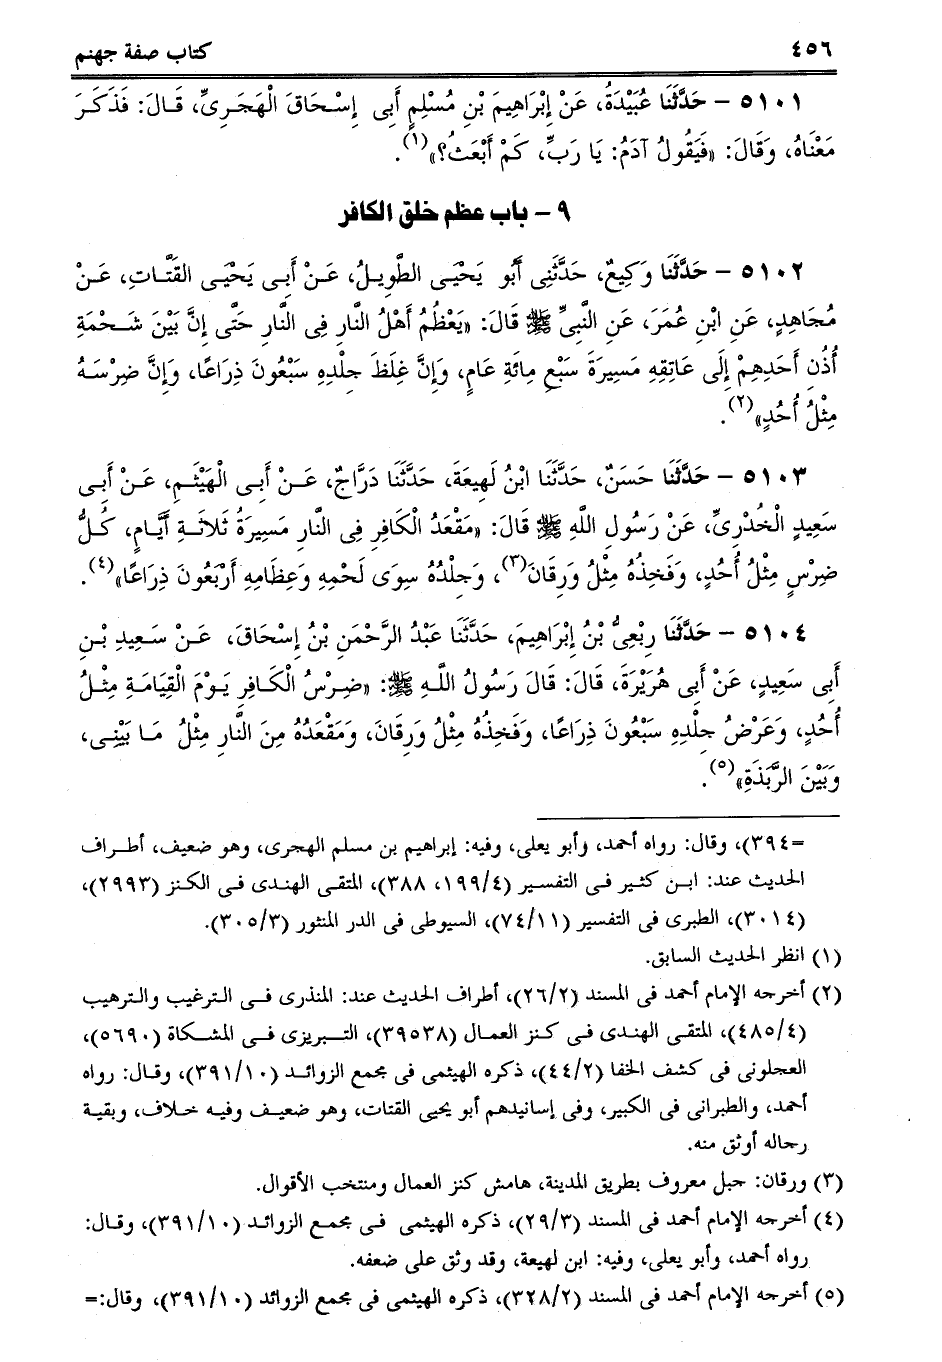 ٤٥٦ كتاب صفة جهنم
٥١٠١ – حَدَّثَنَا عُبَيْدَةُ، عَنْ إِبْرَاهِيمَ بْنِ مُسْلِمٍ أَبِى إِسْحَاقَ الْهَجَرِىِّ، قَالَ: فَذَكَرَ
مَعْنَاهُ، وَقَالَ: «فَيَقُولُ آدَمُ: يَا رَبِّ، كَمْ أَبْعَثُ؟»(١).
٩ – باب عظم خلق الكافر
٥١٠٢ – حَدَّثَنَا وَكِيعٌ، حَدَّثَنِى أَبُو يَحْيَى الطَّوِيلُ، عَنْ أَبِى يَحْيَى القَتَّاتِ، عَنْ
مُجَاهِدٍ، عَنِ ابْنِ عُمَرَ، عَنِ النَّبِىِّ ﷺ قَالَ: «يَعْظُمُ أَهْلُ النَّارِ فِى النَّارِ حَتَّى إِنَّ بَيْنَ شَحْمَةِ
أُذُنِ أَحَدِهِمْ إِلَى عَاتِقِهِ مَسِيرَةَ سَبْعِ مِائَةِ عَامٍ، وَإِنَّ غِلَظَ جِلْدِهِ سَبْعُونَ ذِرَاعًا، وَإِنَّ ضِرْسَهُ
مِثْلُ أُحُدٍ»(٢).
٥١٠٣ – حَدَّثَنَا حَسَنٌ، حَدَّثَنَا ابْنُ لَهِيعَةَ، حَدَّثَنَا دَرَّاجٌ، عَنْ أَبِى الْهَيْثَمِ، عَنْ أَبِى
سَعِيدٍ الْخُدْرِىِّ، عَنْ رَسُولِ اللَّهِ ﷺ قَالَ: «مَقْعَدُ الْكَافِرِ فِى النَّارِ مَسِيرَةُ ثَلَاثَةِ أَيَّامٍ، كُلُّ
ضِرْسٍ مِثْلُ أُحُدٍ، وَفَخِذُهُ مِثْلُ وَرِقَانَ(٣)، وَجِلْدُهُ سِوَى لَحْمِهِ وَعِظَامِهِ أَرْبَعُونَ ذِرَاعًا»(٤).
٥١٠٤ – حَدَّثَنَا رِبْعِىُّ بْنُ إِبْرَاهِيمَ، حَدَّثَنَا عَبْدُ الرَّحْمَنِ بْنُ إِسْحَاقَ، عَنْ سَعِيدِ بْنِ
أَبِى سَعِيدٍ، عَنْ أَبِى هُرَيْرَةَ، قَالَ: قَالَ رَسُولُ اللَّهِ ﷺ: «ضِرْسُ الْكَافِرِ يَوْمَ الْقِيَامَةِ مِثْلُ
أُحُدٍ، وَعَرْضُ جِلْدِهِ سَبْعُونَ ذِرَاعًا، وَفَخِذُهُ مِثْلُ وَرِقَانَ، وَمَقْعَدُهُ مِنَ النَّارِ مِثْلُ مَا بَيْنِى،
وَبَيْنَ الرَّبَذَةِ»(٥).
=٣٩٤)، وقال: رواه أحمد، وأبو يعلى، وفيه: إبراهيم بن مسلم الهجرى، وهو ضعيف، أطراف
الحديث عند: ابن كثير فى التفسير (١٩٩/٤، ٣٨٨)، المتقى الهندى فى الكنز (٢٩٩٣)،
(٣٠١٤)، الطبرى فى التفسير (٧٤/١١)، السيوطى فى الدر المنثور (٣٠٥/٣).
(١) انظر الحديث السابق.
(٢) أخرجه الإمام أحمد فى المسند (٢٦/٢)، أطراف الحديث عند: المنذرى فى الترغيب والترهيب
(٤٨٥/٤)، المتقى الهندى فى كنز العمال (٣٩٥٣٨)، التبريزى فى المشكاة (٥٦٩٠)،
العجلونى فى كشف الخفا (٤٤/٢)، ذكره الهيثمى فى مجمع الزوائد (٣٩١/١٠)، وقال: رواه
أحمد، والطبرانى فى الكبير، وفى إسانيدهم أبو يحيى القتات، وهو ضعيف وفيه خلاف، وبقية
رجاله أوثق منه.
(٣) ورقان: جبل معروف بطريق المدينة، هامش كنز العمال ومنتخب الأقوال.
(٤) أخرجه الإمام أحمد فى المسند (٢٩/٣)، ذكره الهيثمى فى مجمع الزوائد (٣٩١/١٠)، وقال:
رواه أحمد، وأبو يعلى، وفيه: ابن لهيعة، وقد وثق على ضعفه.
(٥) أخرجه الإمام أحمد فى المسند (٣٢٨/٢)، ذكره الهيثمى فى مجمع الزوائد (٣٩١/١٠)، وقال:=